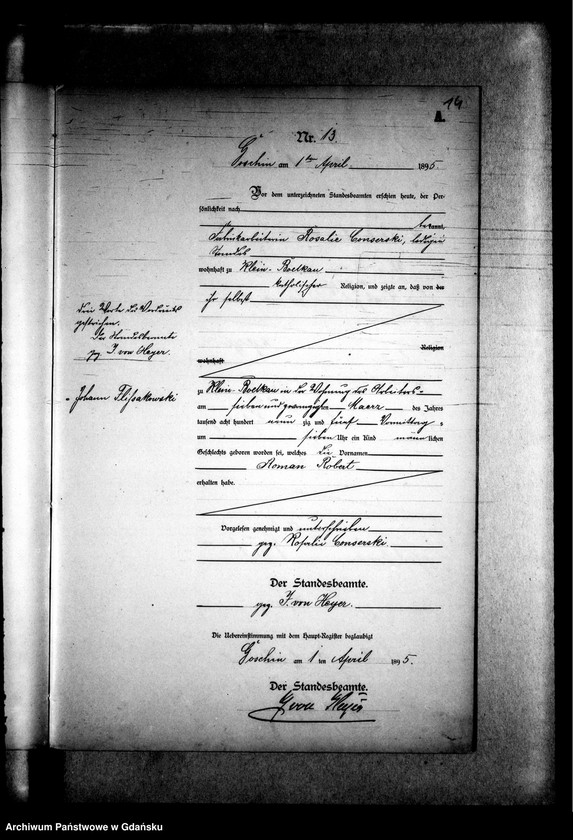 14
A.
Nr. 13
Göschin am 1ten April 1895.
Vor dem unterzeichneten Standesbeamten erschien heute, der Per-
sönlichkeit nach
bekannt,
Fabrikarbeiterin Rosalie Conserski, ledigen
Standes
wohnhaft zu Klein-Boelkau
katholischer Religion, und zeigte an, daß von der
ihr selbst
Religion
wohnhaft
zu Klein-Boelkau in der Wohnung des Arbeiters
am sieben und zwanzigsten Maerz des Jahres
tausend acht hundert neun zig und fünf Vormittag s
um sieben Uhr ein Kind männlichen
Geschlechts geboren worden sei, welches die Vornamen
Roman Robert
erhalten habe.
Vorgelesen genehmigt und unterschrieben
gez. Rosalie Conserski.
Der Standesbeamte.
gez. J. von Heyer.
Die Uebereinstimmung mit dem Haupt-Register beglaubigt
Göschin am 1 ten April 1895.
Der Standesbeamte.
J von Heyer
drei Worte des Vordrucks
gestrichen.
Der Standesbeamte
gez. J. von Heyer.
Johann Flissakowski
Archiwum Państwowe w Gdańsku